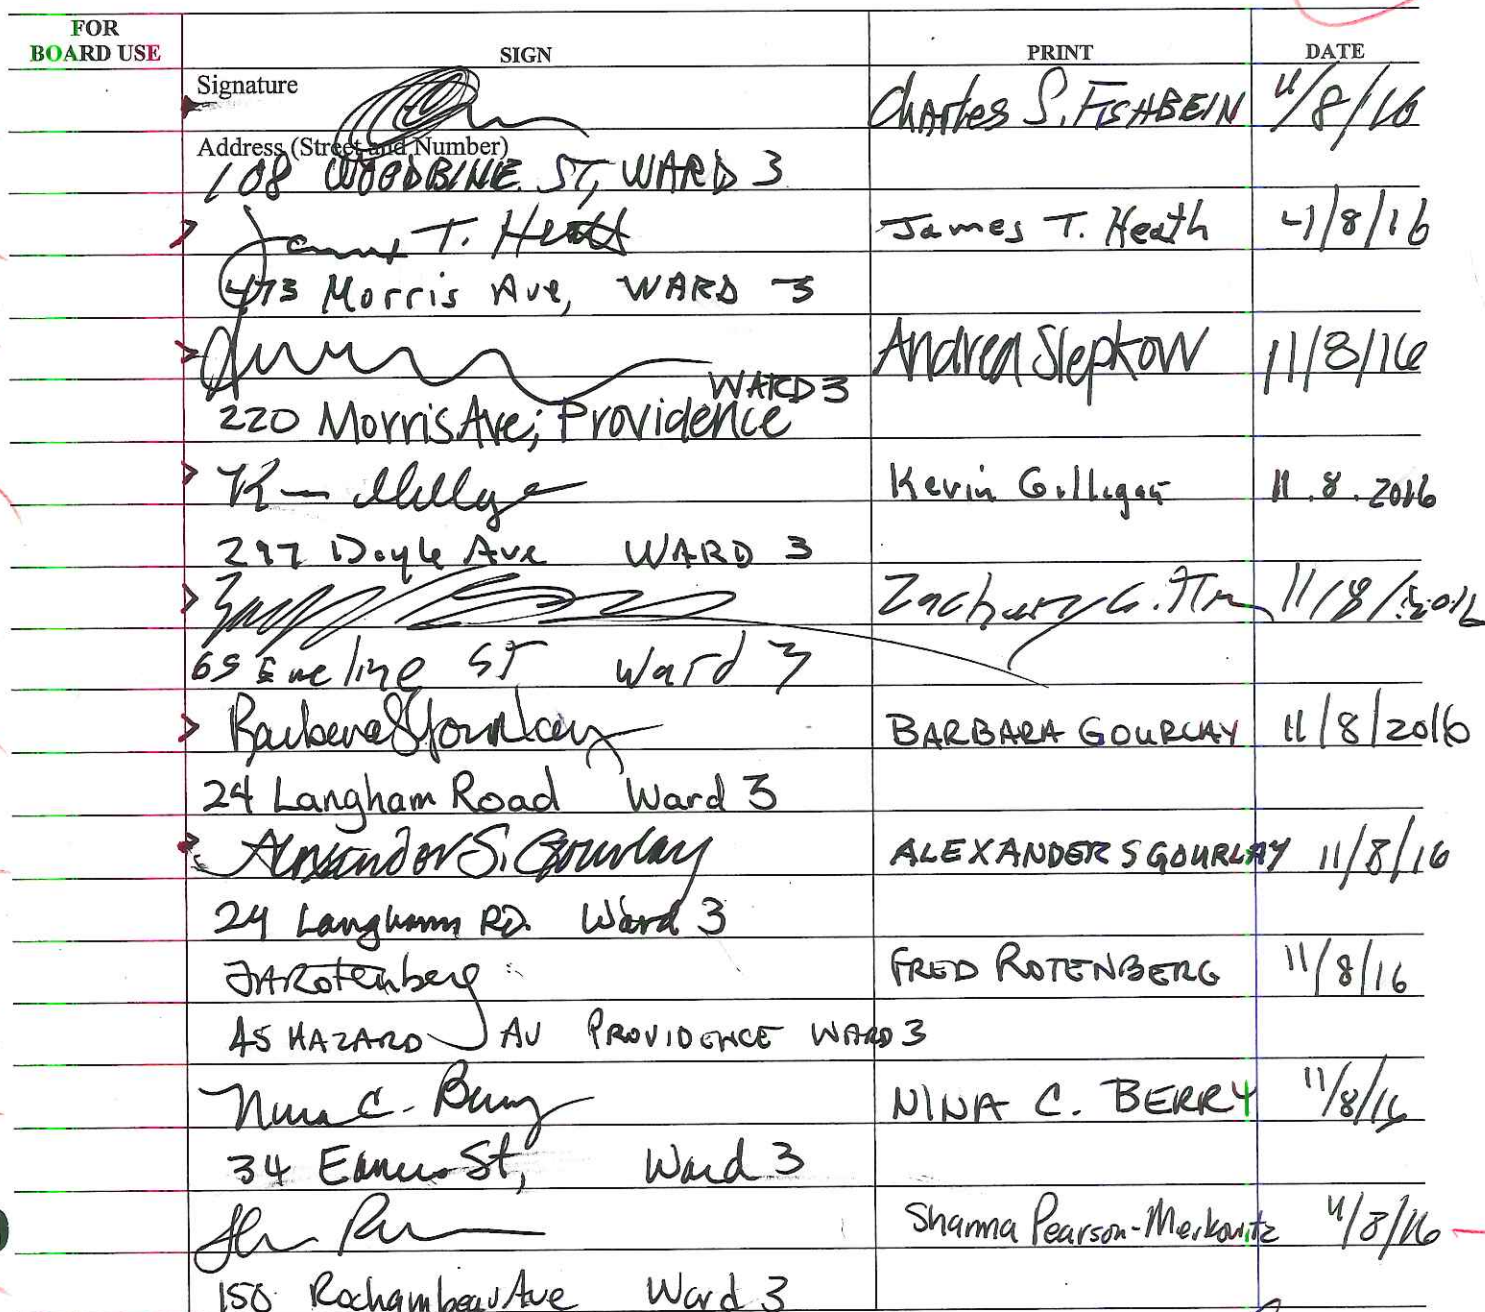 FOR
BOARD USE
SIGN
PRINT
DATE
Signature
Charles S. FISHBEIN 11/8/16
Address (Street and Number)
108 WOODBINE ST, WARD 3
James T. Heath James T. Heath 11/8/16
473 Morris Ave, WARD 3
Andrea Slepkow 11/8/16
WARD 3
220 Morris Ave; Providence
Kevin Gilligan 11.8.2016
297 Doyle Ave WARD 3
Zachary G. 11/8/2016
65 Eveline ST Ward 3
Barbara Gourlay BARBARA GOURLAY 11/8/2016
24 Langham Road Ward 3
Alexander S. Gourlay ALEXANDER S GOURLAY 11/8/16
24 Langham RD. Ward 3
FARotenberg FRED ROTENBERG 11/8/16
45 HAZARD AV PROVIDENCE WARD 3
Nina C. Berry NINA C. BERRY 11/8/16
34 St, Ward 3
Shanna Pearson-Merkowitz 11/8/16
150 Rochambeau Ave Ward 3